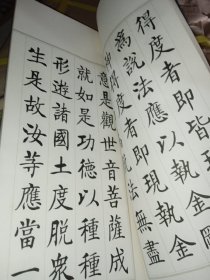 得度者即皆
為說法應以執金
得度者即現執金
無盡
意是觀世音菩薩成
就如是功德以種種
形遊諸國土度脫眾
生是故汝等應當一